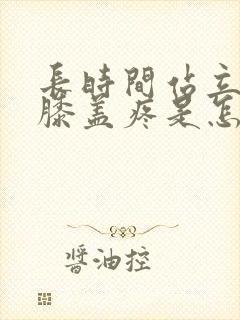 長時間佔立
膝盖疼是怎
醬油控